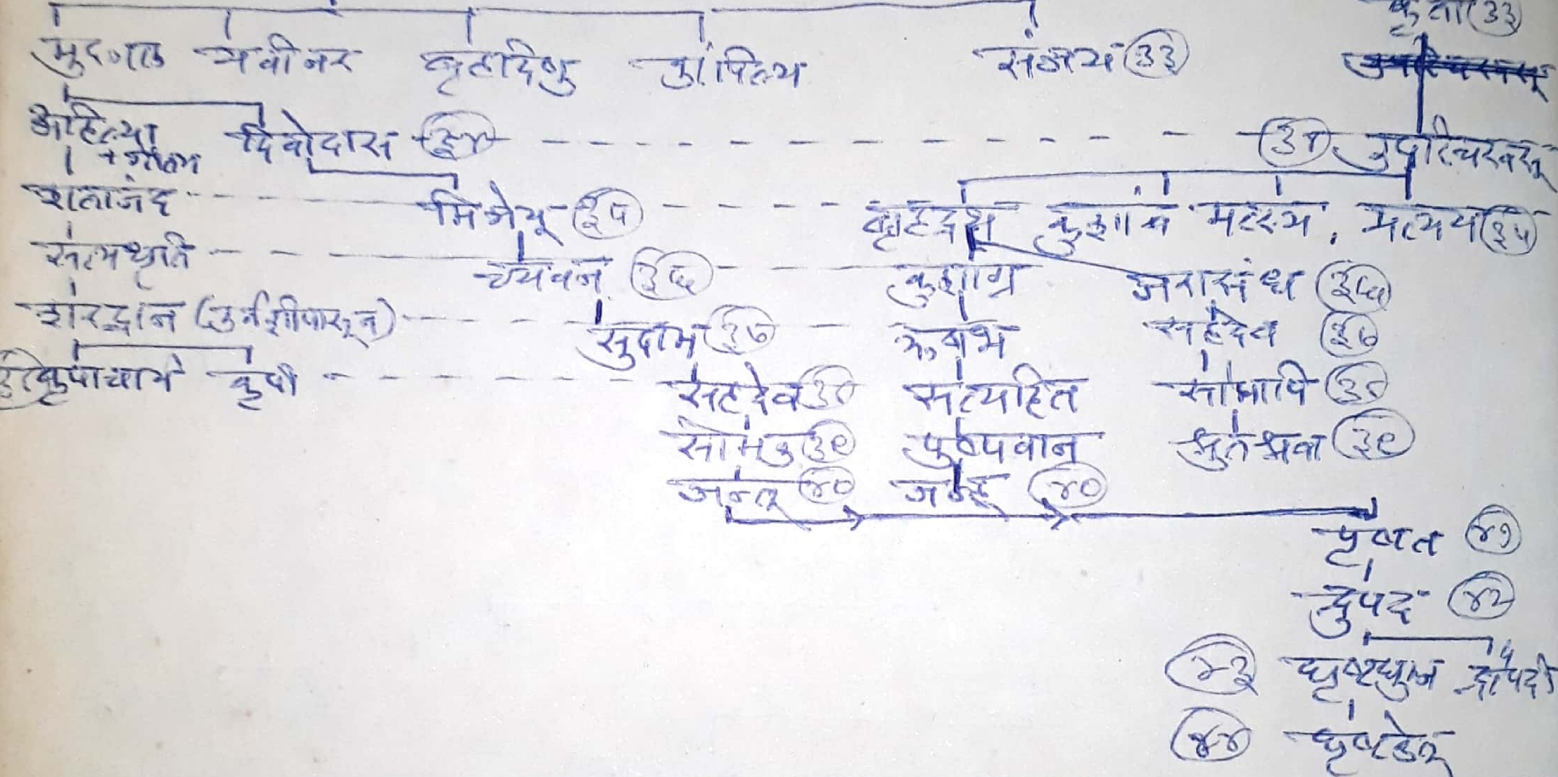 कृता (३३)
मुद्गल यवीनर बृहदिषु कांपिल्य संजय (३३)
अहिल्या दिवोदास (३४) - - - - - - - - - - (३४) उपरिचरवसू
+ गौतम
शतानंद - - - - मित्रेयू (३५) - - - - बृहद्रथ कुशांब मत्स्य, प्रत्यय (३५)
सत्यधृति - - - - च्यवन (३६) - - कुशाग्र जरासंध (३६)
शरद्वान (उर्वशीपासून) - - - - सुदाम (३७) - - ऋषभ सहदेव (३७)
कृपाचार्य कृपी - - - - - - सहदेव (३८) सत्यहित सोमापि (३८)
सोमक (३९) पुष्पवान श्रुतश्रवा (३९)
जन्तू (४०) जन्हू (४०)
पृषत (४१)
द्रुपद (४२)
(४३) धृष्टद्युम्न द्रौपदी
(४४) धृष्टकेतू